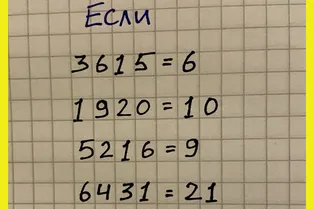 Если
3615=6
1920=10
5216=9
6431=21